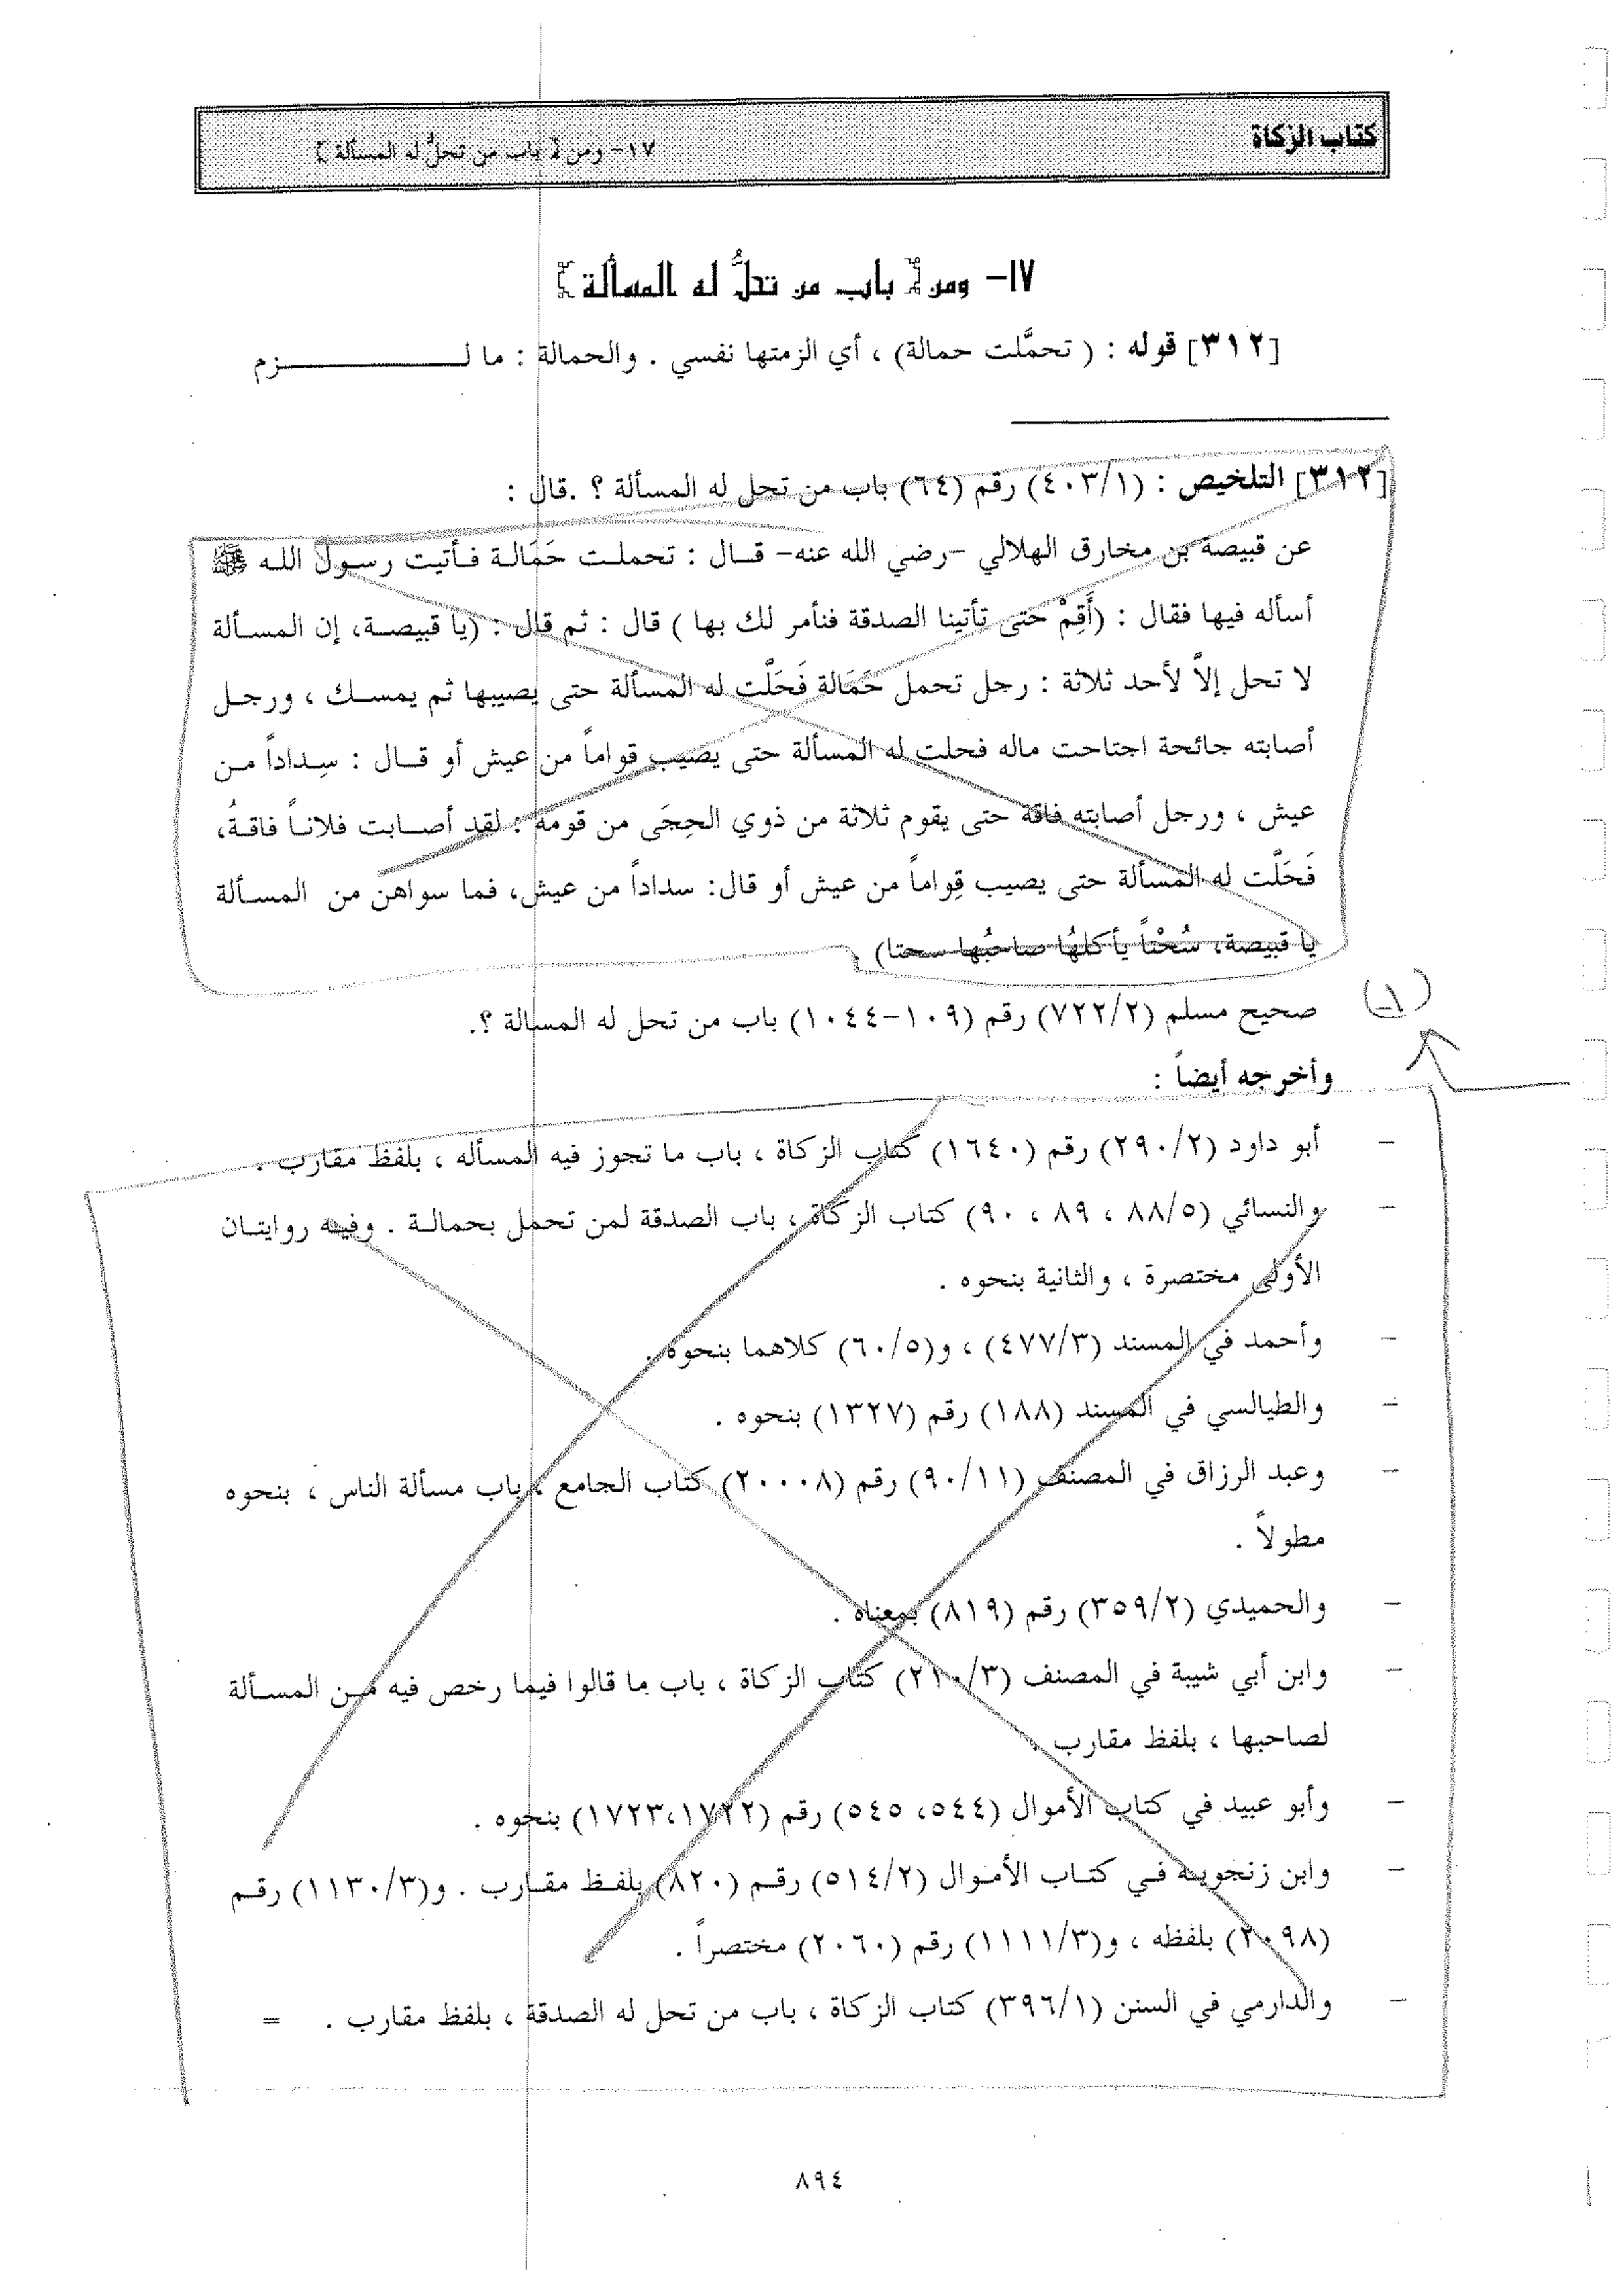 كتاب الزكاة
١٧- ومن [ باب من تحلُّ له المسألة ]
١٧- ومن [ باب من تحلُّ له المسألة ]
[٣١٢] قوله : ( تحمَّلت حمالة) ، أي الزمتها نفسي . والحمالة : ما لـــــــــزم
[٣١٢] التلخيص : (٤٠٣/١) رقم (٦٤) باب من تحل له المسألة ؟ .قال :
عن قبيصة بن مخارق الهلالي -رضي الله عنه- قـال : تحملـت حَمَالـة فـأتيت رسـول اللـه ﷺ
أسأله فيها فقال : (أَقِمْ حتى تأتينا الصدقة فنأمر لك بها ) قال : ثم قال : (يا قبيصـة، إن المسـألة
لا تحل إلاَّ لأحد ثلاثة : رجل تحمل حَمَالة فَحَلَّت له المسألة حتى يصيبها ثم يمسـك ، ورجـل
أصابته جائحة اجتاحت ماله فحلت له المسألة حتى يصيب قواماً من عيش أو قـال : سِـداداً مـن
عيش ، ورجل أصابته فاقة حتى يقوم ثلاثة من ذوي الحِجَى من قومه : لقد أصـابت فلانـاً فاقـةُ،
فَحَلَّت له المسألة حتى يصيب قِواماً من عيش أو قال: سداداً من عيش، فما سواهن من المسـألة
يا قبيصة، سُحْتاً يأكلهُا صاحبُها سحتا) .
صحيح مسلم (٧٢٢/٢) رقم (١٠٩-١٠٤٤) باب من تحل له المسالة ؟.
وأخرجه أيضاً :
- أبو داود (٢٩٠/٢) رقم (١٦٤٠) كتاب الزكاة ، باب ما تجوز فيه المسأله ، بلفظ مقارب .
- والنسائي (٨٨/٥ ، ٨٩ ، ٩٠) كتاب الزكاة ، باب الصدقة لمن تحمل بحمالـة . وفيه روايتـان
الأولى مختصرة ، والثانية بنحوه .
- وأحمد في المسند (٤٧٧/٣) ، و(٦٠/٥) كلاهما بنحوه .
- والطيالسي في المسند (١٨٨) رقم (١٣٢٧) بنحوه .
- وعبد الرزاق في المصنف (٩٠/١١) رقم (٢٠٠٠٨) كتاب الجامع ، باب مسألة الناس ، بنحوه
مطولاً .
- والحميدي (٣٥٩/٢) رقم (٨١٩) بمعناه .
- وابن أبي شيبة في المصنف (٢١٠/٣) كتاب الزكاة ، باب ما قالوا فيما رخص فيه مـن المسـألة
لصاحبها ، بلفظ مقارب .
- وأبو عبيد في كتاب الأموال (٥٤٤، ٥٤٥) رقم (١٧٢٣،١٧٢٢) بنحوه .
- وابن زنجويـه فـي كتـاب الأمـوال (٥١٤/٢) رقـم (٨٢٠) بلفـظ مقـارب . و(١١٣٠/٣) رقـم
(٢٠٩٨) بلفظه ، و(١١١١/٣) رقم (٢٠٦٠) مختصراً .
- والدارمي في السنن (٣٩٦/١) كتاب الزكاة ، باب من تحل له الصدقة ، بلفظ مقارب . =
٨٩٤